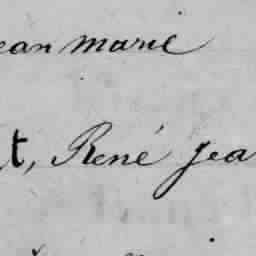 ean marie
t, René Jea